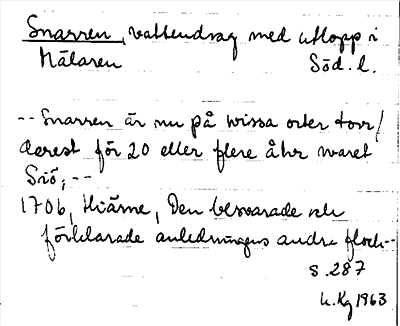 Snarren, vattendrag med utlopp i
Mälaren Söd. l.
-- Snarren är nu på wissa orter torr/
darest för 20 eller flere åhr waret
Siö, --
1706, Hiärne, Den beswarade och
förklarade anledningens andra flock--
s. 287
h. Kg 1963